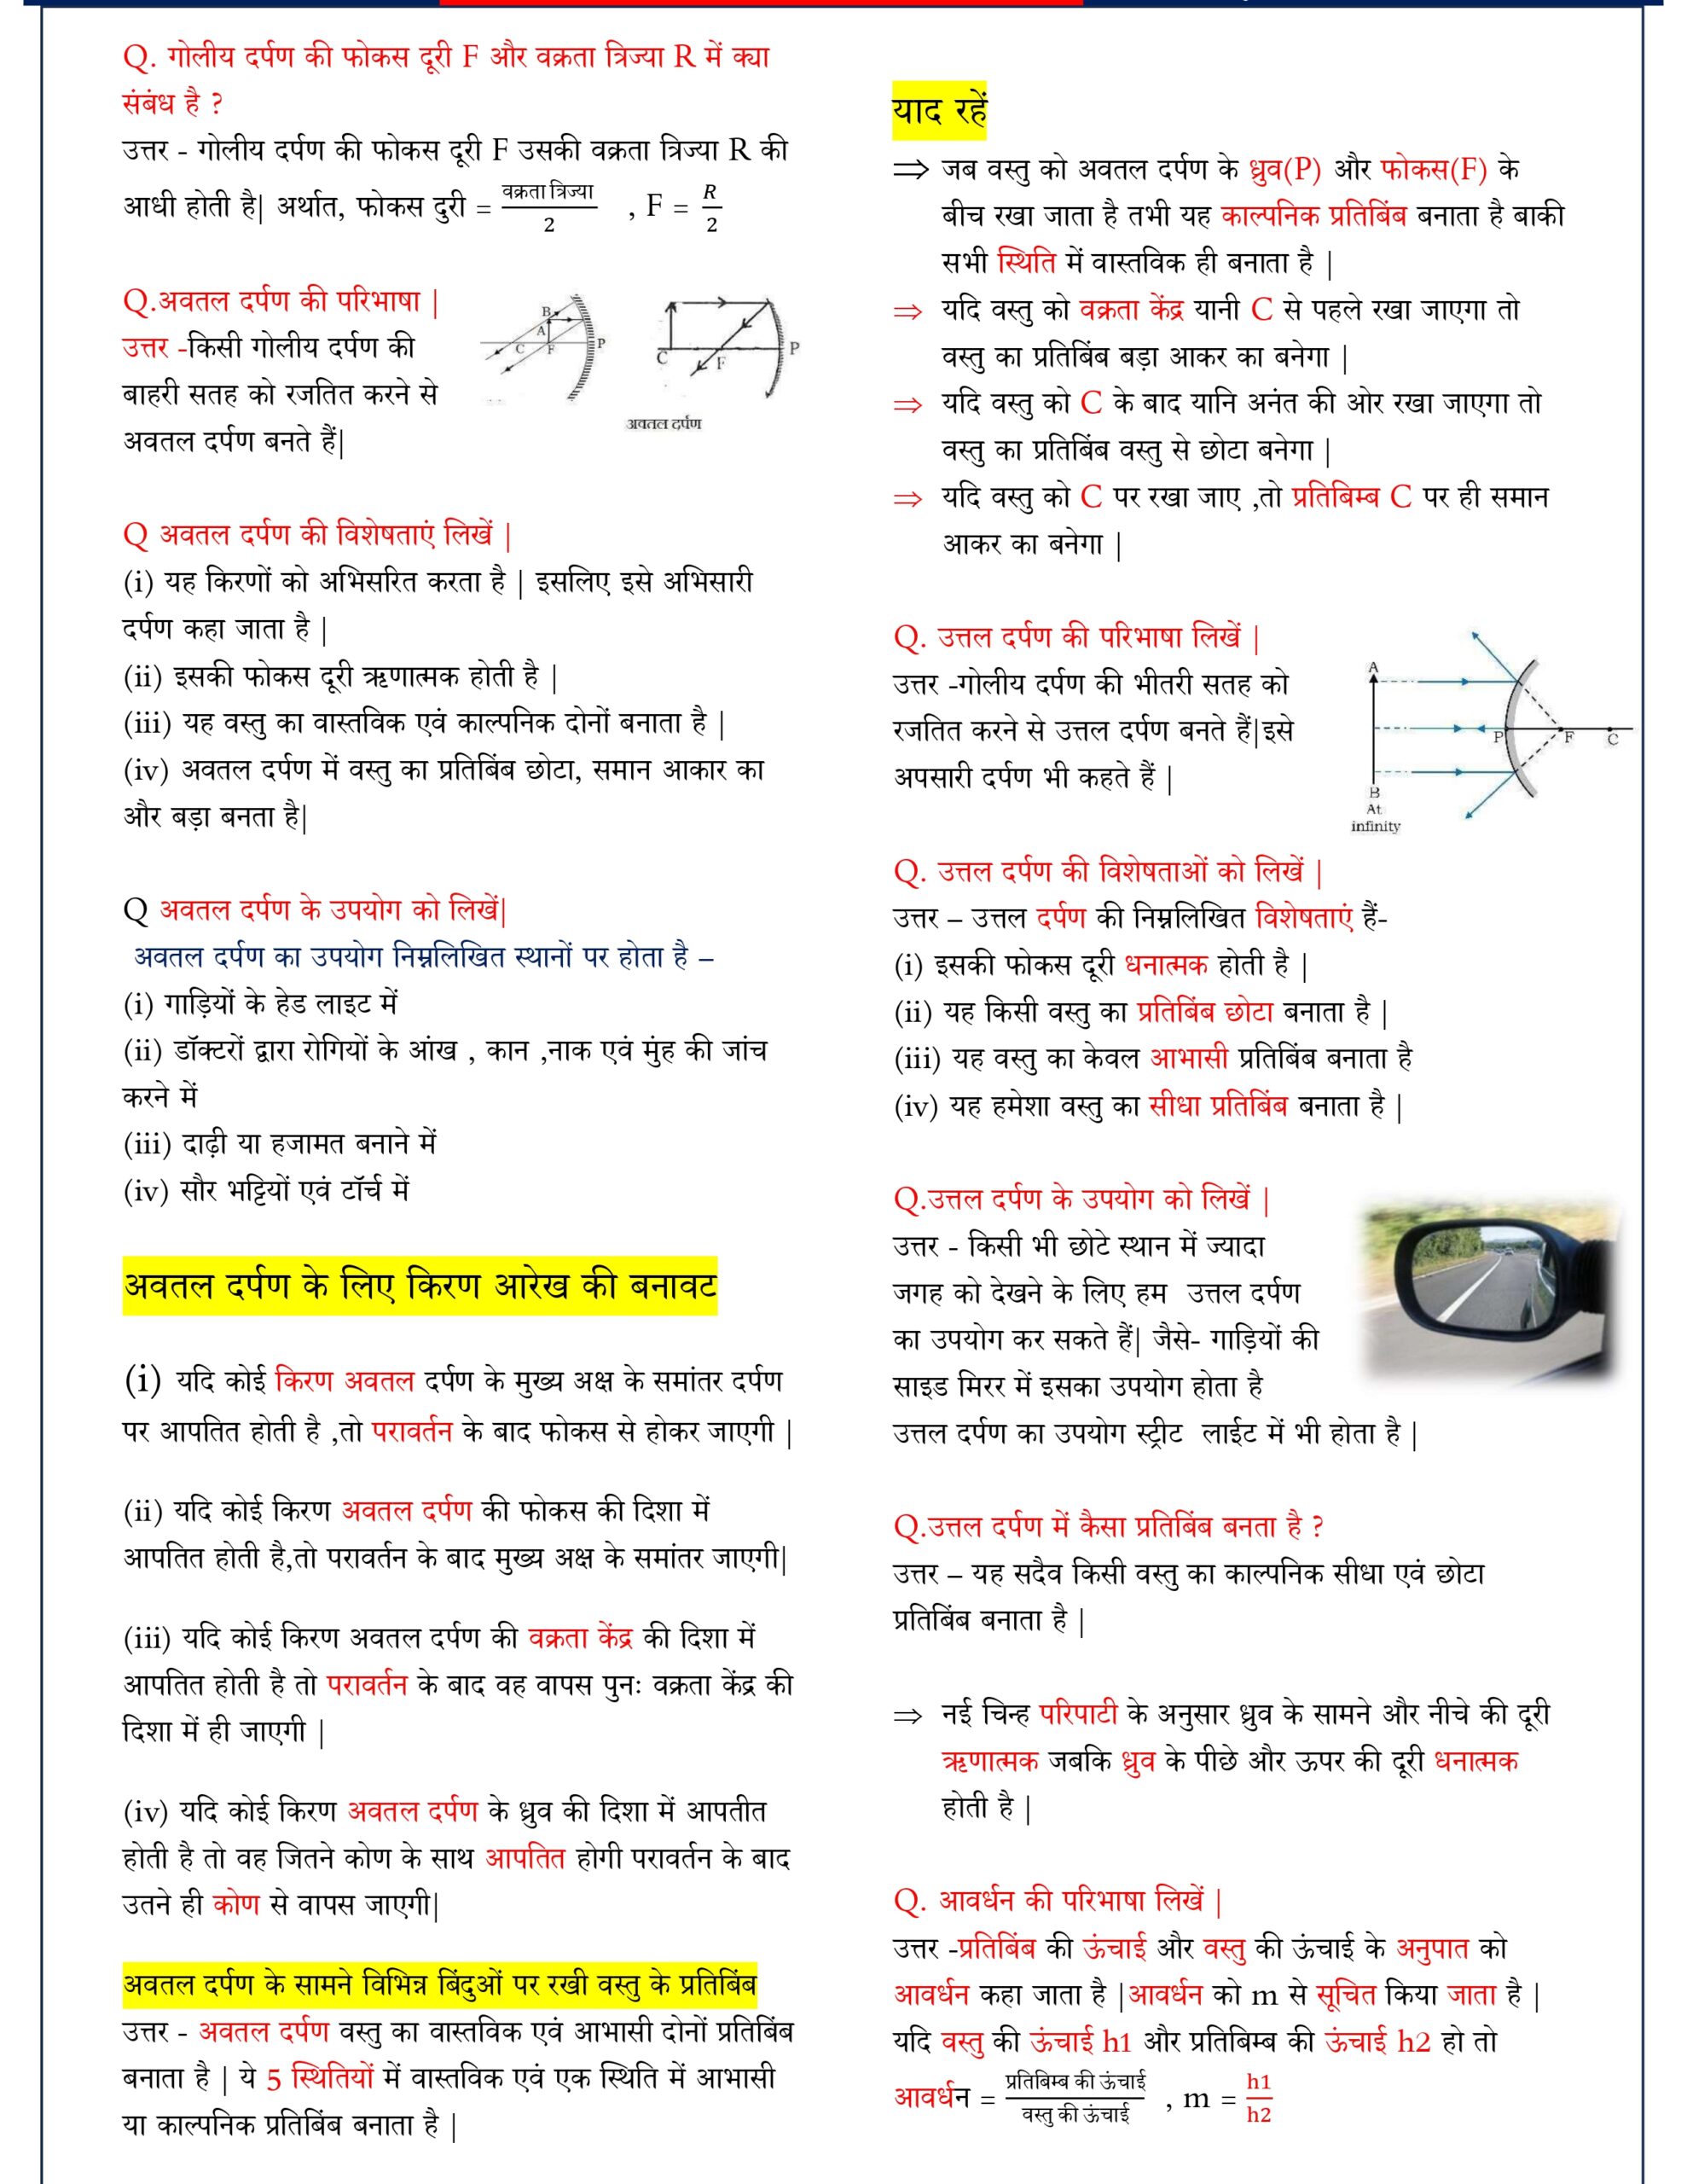 Q. गोलीय दर्पण की फोकस दूरी F और वक्रता त्रिज्या R में क्या
संबंध है ?
उत्तर - गोलीय दर्पण की फोकस दूरी F उसकी वक्रता त्रिज्या R की
आधी होती है| अर्थात, फोकस दुरी = वक्रता त्रिज्या / 2 , F = R / 2
Q.अवतल दर्पण की परिभाषा |
उत्तर -किसी गोलीय दर्पण की
बाहरी सतह को रजतित करने से
अवतल दर्पण बनते हैं|
B
A
C F P
C F P
अवतल दर्पण
Q अवतल दर्पण की विशेषताएं लिखें |
(i) यह किरणों को अभिसरित करता है | इसलिए इसे अभिसारी
दर्पण कहा जाता है |
(ii) इसकी फोकस दूरी ऋणात्मक होती है |
(iii) यह वस्तु का वास्तविक एवं काल्पनिक दोनों बनाता है |
(iv) अवतल दर्पण में वस्तु का प्रतिबिंब छोटा, समान आकार का
और बड़ा बनता है|
Q अवतल दर्पण के उपयोग को लिखें|
अवतल दर्पण का उपयोग निम्नलिखित स्थानों पर होता है –
(i) गाड़ियों के हेड लाइट में
(ii) डॉक्टरों द्वारा रोगियों के आंख , कान ,नाक एवं मुंह की जांच
करने में
(iii) दाढ़ी या हजामत बनाने में
(iv) सौर भट्टियों एवं टॉर्च में
अवतल दर्पण के लिए किरण आरेख की बनावट
(i) यदि कोई किरण अवतल दर्पण के मुख्य अक्ष के समांतर दर्पण
पर आपतित होती है ,तो परावर्तन के बाद फोकस से होकर जाएगी |
(ii) यदि कोई किरण अवतल दर्पण की फोकस की दिशा में
आपतित होती है,तो परावर्तन के बाद मुख्य अक्ष के समांतर जाएगी|
(iii) यदि कोई किरण अवतल दर्पण की वक्रता केंद्र की दिशा में
आपतित होती है तो परावर्तन के बाद वह वापस पुनः वक्रता केंद्र की
दिशा में ही जाएगी |
(iv) यदि कोई किरण अवतल दर्पण के ध्रुव की दिशा में आपतीत
होती है तो वह जितने कोण के साथ आपतित होगी परावर्तन के बाद
उतने ही कोण से वापस जाएगी|
अवतल दर्पण के सामने विभिन्न बिंदुओं पर रखी वस्तु के प्रतिबिंब
उत्तर - अवतल दर्पण वस्तु का वास्तविक एवं आभासी दोनों प्रतिबिंब
बनाता है | ये 5 स्थितियों में वास्तविक एवं एक स्थिति में आभासी
या काल्पनिक प्रतिबिंब बनाता है |
याद रहें
⇒ जब वस्तु को अवतल दर्पण के ध्रुव(P) और फोकस(F) के
बीच रखा जाता है तभी यह काल्पनिक प्रतिबिंब बनाता है बाकी
सभी स्थिति में वास्तविक ही बनाता है |
⇒ यदि वस्तु को वक्रता केंद्र यानी C से पहले रखा जाएगा तो
वस्तु का प्रतिबिंब बड़ा आकर का बनेगा |
⇒ यदि वस्तु को C के बाद यानि अनंत की ओर रखा जाएगा तो
वस्तु का प्रतिबिंब वस्तु से छोटा बनेगा |
⇒ यदि वस्तु को C पर रखा जाए ,तो प्रतिबिम्ब C पर ही समान
आकर का बनेगा |
Q. उत्तल दर्पण की परिभाषा लिखें |
उत्तर -गोलीय दर्पण की भीतरी सतह को
रजतित करने से उत्तल दर्पण बनते हैं|इसे
अपसारी दर्पण भी कहते हैं |
A
P F C
B
At
infinity
Q. उत्तल दर्पण की विशेषताओं को लिखें |
उत्तर – उत्तल दर्पण की निम्नलिखित विशेषताएं हैं-
(i) इसकी फोकस दूरी धनात्मक होती है |
(ii) यह किसी वस्तु का प्रतिबिंब छोटा बनाता है |
(iii) यह वस्तु का केवल आभासी प्रतिबिंब बनाता है
(iv) यह हमेशा वस्तु का सीधा प्रतिबिंब बनाता है |
Q.उत्तल दर्पण के उपयोग को लिखें |
उत्तर - किसी भी छोटे स्थान में ज्यादा
जगह को देखने के लिए हम उत्तल दर्पण
का उपयोग कर सकते हैं| जैसे- गाड़ियों की
साइड मिरर में इसका उपयोग होता है
उत्तल दर्पण का उपयोग स्ट्रीट लाईट में भी होता है |
Q.उत्तल दर्पण में कैसा प्रतिबिंब बनता है ?
उत्तर – यह सदैव किसी वस्तु का काल्पनिक सीधा एवं छोटा
प्रतिबिंब बनाता है |
⇒ नई चिन्ह परिपाटी के अनुसार ध्रुव के सामने और नीचे की दूरी
ऋणात्मक जबकि ध्रुव के पीछे और ऊपर की दूरी धनात्मक
होती है |
Q. आवर्धन की परिभाषा लिखें |
उत्तर -प्रतिबिंब की ऊंचाई और वस्तु की ऊंचाई के अनुपात को
आवर्धन कहा जाता है |आवर्धन को m से सूचित किया जाता है |
यदि वस्तु की ऊंचाई h1 और प्रतिबिम्ब की ऊंचाई h2 हो तो
आवर्धन = प्रतिबिम्ब की ऊंचाई / वस्तु की ऊंचाई , m = h1 / h2